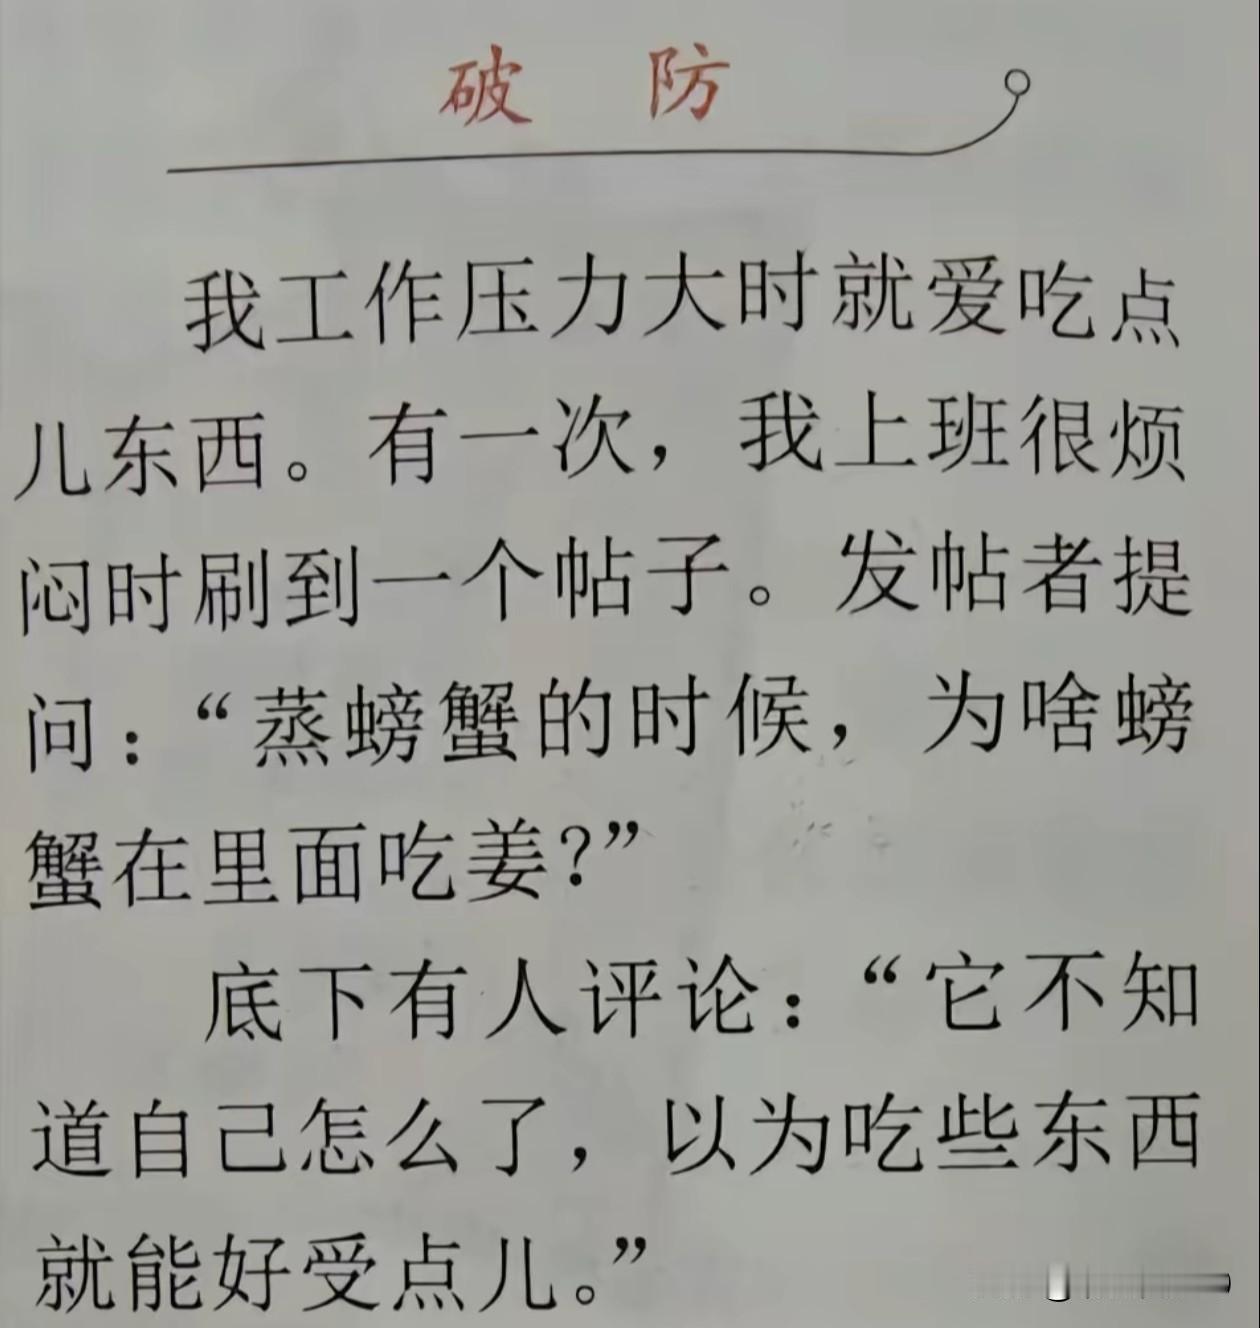 破 防
我工作压力大时就爱吃点
儿东西。有一次，我上班很烦
闷时刷到一个帖子。发帖者提
问：“蒸螃蟹的时候，为啥螃
蟹在里面吃姜？”
底下有人评论：“它不知
道自己怎么了，以为吃些东西
就能好受点儿。”